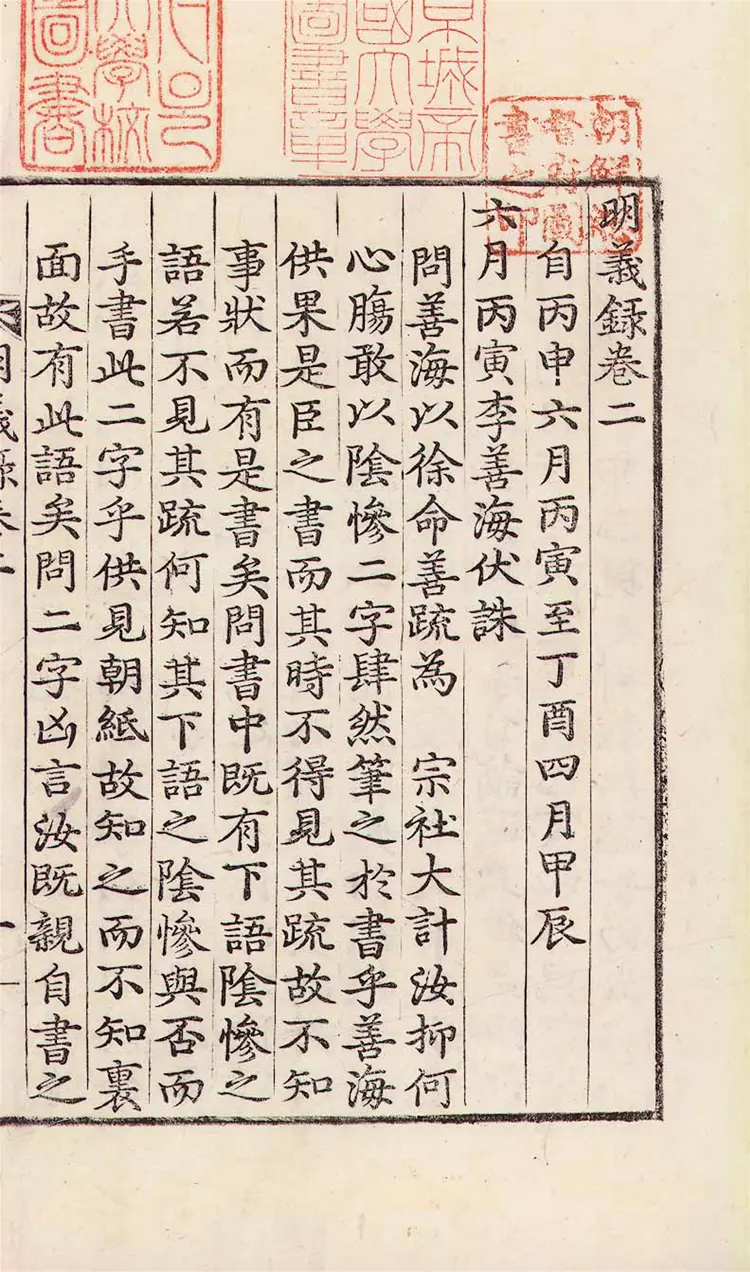 大學校
圖書
京城帝
國大學
圖書章
朝鮮總
督府圖
書之印
明義錄卷二
自丙申六月丙寅至丁酉四月甲辰
六月丙寅李善海伏誅
問善海以徐命善䟽為　宗社大計汝抑何
心膓敢以隂慘二字肆然筆之於書乎善海
供果是臣之書而其時不得見其䟽故不知
事狀而有是書矣問書中既有下語隂慘之
語若不見其䟽何知其下語之隂慘與否而
手書此二字乎供見朝紙故知之而不知裏
面故有此語矣問二字凶言汝既親自書之
明義錄卷二　一